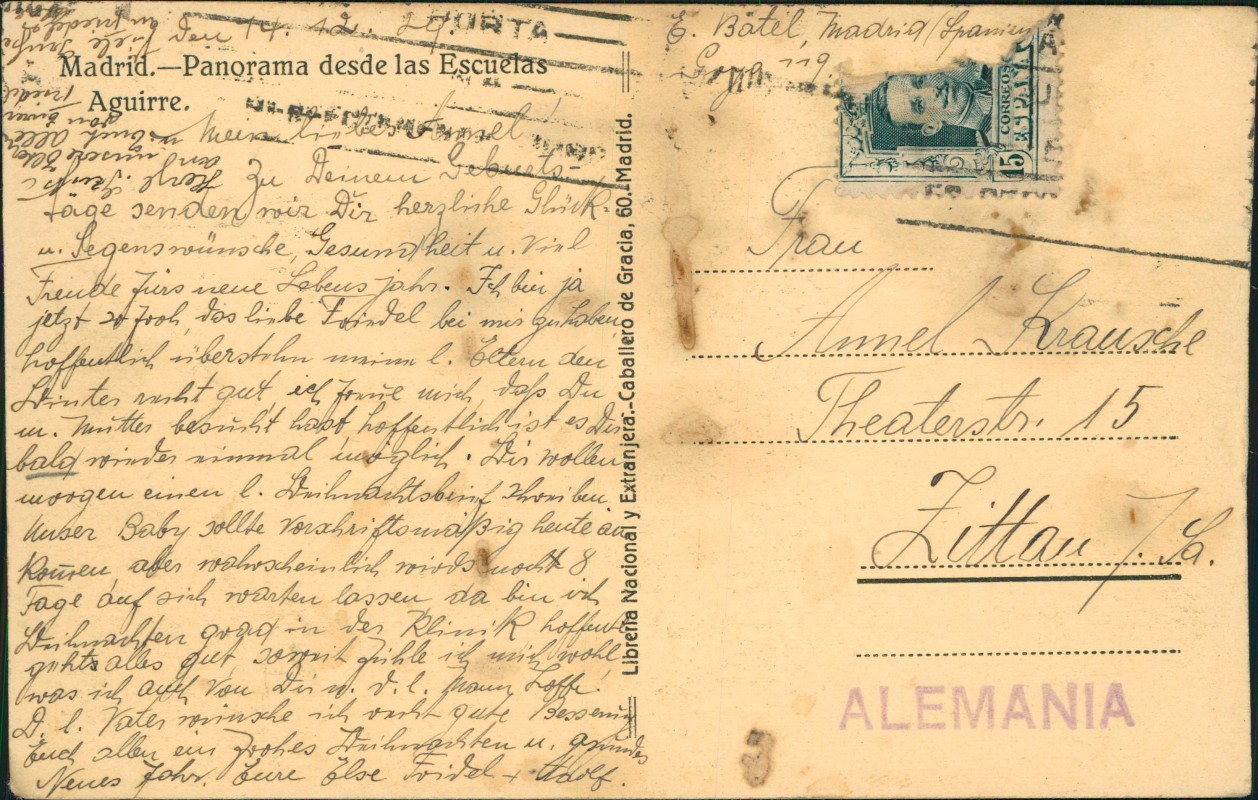 Den 14. 12. 29.
Madrid.—Panorama desde las Escuelas
Aguirre.
Mein liebes Annel!
Zu Deinem Geburts-
tage senden wir Dir herzliche Glück-
u. Segenswünsche, Gesundheit u. viel
Freude fürs neue Lebensjahr. Ich bin ja
jetzt so froh, das liebe Friedel bei mir zu haben
hoffentlich überstehn meine l. Eltern den
Winter recht gut, ich freue mich, daß Du
m. Mutter besucht hast, hoffentlich ist es Dir
bald wieder einmal möglich. Wir wollen
morgen einen l. Weihnachtsbrief schreiben
Unser Baby sollte vorschriftsmäßig heute an
kommen, aber wahrscheinlich wirds noch 8
Tage auf sich warten lassen, da bin ich
Weihnachten grad in der Klinik hoffentl.
gehts alles gut, soweit fühle ich mich wohl,
was ich auch von Dir u. d. l. Mann hoffe.
D. l. Vater wünsche ich recht gute Besserung
Euch allen ein frohes Weihnachten u. gesundes
Neues Jahr. Eure Else Friedel + Adolf.
Librería Nacional y Extranjera.-Caballero de Gracia, 60.-Madrid.
E. Bätel, Madrid/Spanien
Goya 119
CORREOS
ESPAÑA
15
Frau
Annel Krausche
Theaterstr. 15
Zittau /Sa.
ALEMANIA